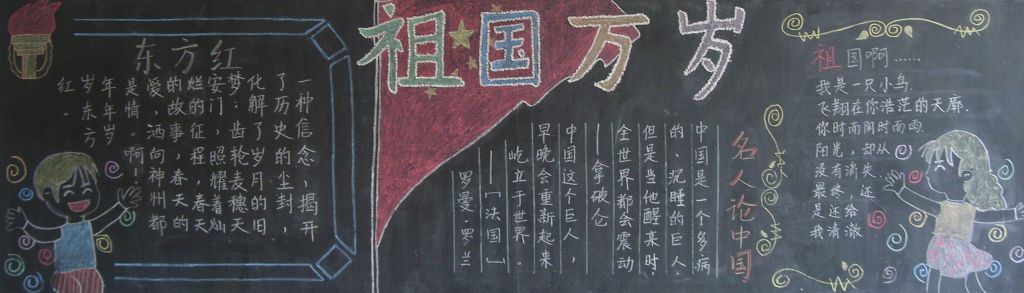 祖国万岁
东方红
一种信念,揭开
了历史的尘封,
化解了岁月的旧
梦:齿轮麦穗天
安门,照耀灿
烂的征程,春天
的故事,春天的
爱,洒向神州都
是情。啊!
年年岁
岁东方
红。
名人论中国
中国是一个多病
的、沉睡的巨人.
但是当他醒来时
全世界都会震动
—拿破仑
中国这个巨人,
早晚会重新起来
屹立于世界.
—[法国]
罗曼 罗兰
祖国啊……
我是一只小鸟.
飞翔在你浩茫的天廓.
你时而阴时而雨.
阳光,却从
没有消失
最终还
是还给
我清澈